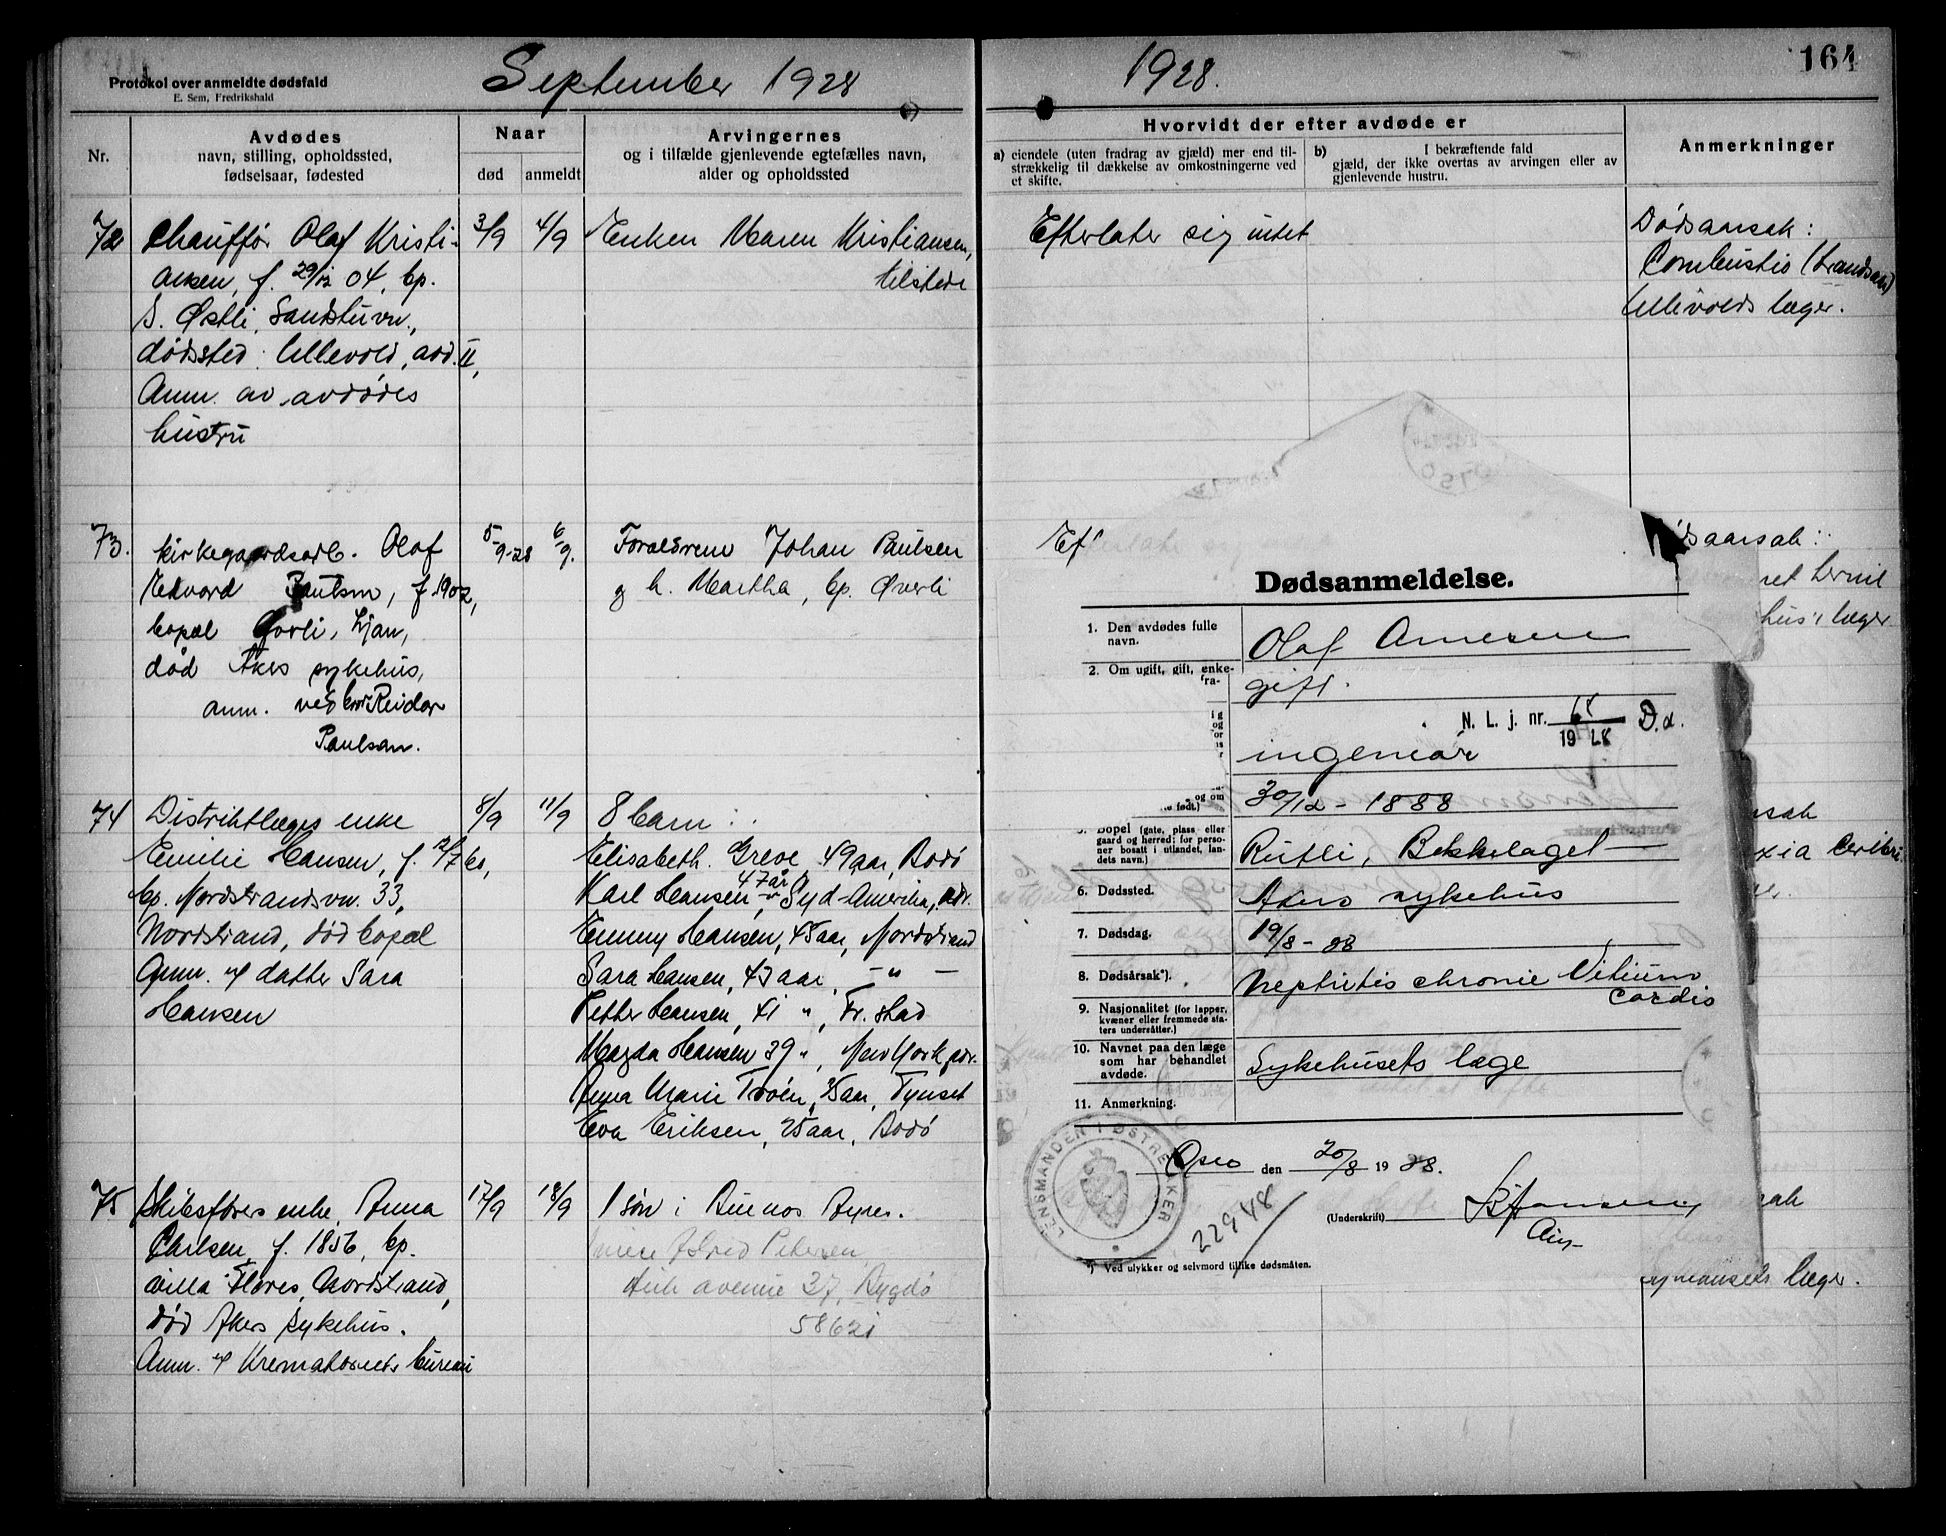 Protokol over anmeldte dødsfald
E. Sem, Fredrikshald
September 1928
Nr.
Avdødes
navn, stilling, opholdssted,
fødselsaar, fødested
Naar
død
anmeldt
Arvingernes
og i tilfælde gjenlevende egtefælles navn,
alder og opholdssted
72
Chauffør Olaf Kristi-
ansen, f. 29/12 04, bp.
S. Østli, Sandstuvn.,
dødssted: Ullevold, avd. II,
Anm. av avdødes
hustru
3/9
4/9
Enken Maren Kristiansen,
tilstede
73.
Kirkegaardsarb. Olaf
Edvard Paulsen, f. 1902,
bopæl Ljan,
død Akers sykehus,
anm. ved bror Reidar
Paulsen.
5/9-28
6/9.
Forældrene Johan Paulsen
og h. Martha, bp. Øverli
74
Distriktlæges enke
Emilie Hansen, f. 12/7 60,
bp. Nordstrandsvn. 33,
Nordstrand, død bopæl
Anm. af datter Sara
Hansen
8/9
11/9
8 barn:
Elisabeth Greve 49 aar, Bodø
Karl Hansen, 47 år, Syd-Amerika, adr.
Emmy Hansen, 45 aar, Nordstrand
Sara Hansen, 43 aar, - " -
Petter Hansen, 41 ", Fr.stad
Magda Hansen 39 ", New York, adr.
Anna Marie Trøen, 35 aar, Tynset
Eva Eriksen, 25 aar, Bodø
75
Skibsførers enke Anna
Carlsen, f. 1856, bp.
villa "Flores", Nordstrand,
død Akers sykehus.
Anm. af Krematoriets bureau
17/9
18/9
1 søn i Buenos Ayres.
Petersen
avenue 37, Bygdø
58621
1928.
164
Hvorvidt der efter avdøde er
a) eiendele (uten fradrag av gjæld) mer end til-
strækkelig til dækkelse av omkostningerne ved
et skifte.
b) I bekræftende fald
gjæld, der ikke overtas av arvingen eller av
gjenlevende hustru.
Anmerkninger
Efterlater sig intet
Dødsaarsak:
Combustio (brandsaar)
Ullevolds læger.
Ef
dsaarsak:
hus's læger
Dødsanmeldelse.
1. Den avdødes fulle
navn.
Olaf Arnesen
2. Om ugift, gift, enke-
fra-
gift.
N. L. j. nr. 68/1928 D.d.
ingeniør
og om
født.)
30/12 - 1888
Bopel (gate, plass eller
gaard og herred: for perso-
ner bosatt i utlandet, lan-
dets navn.)
Rutli, Bekkelaget
6. Dødssted.
Akers sykehus
7. Dødsdag.
19/8 - 28
8. Dødsårsak*).
Nephritis chronic Vitium
cordis
9. Nasjonalitet (for lapper,
kvæner eller fremmede sta-
ters undersåtter.)
10. Navnet paa den læge
som har behandlet
avdøde.
Sykehusets læge
11. Anmerkning.
LENSMANDEN I ØSTRE AKER
Oslo den 20/8 1928.
22948
(Underskrift)
*) Ved ulykker og selvmord tillike dødsmåten.
sak
xia cerebri
sak
læger.